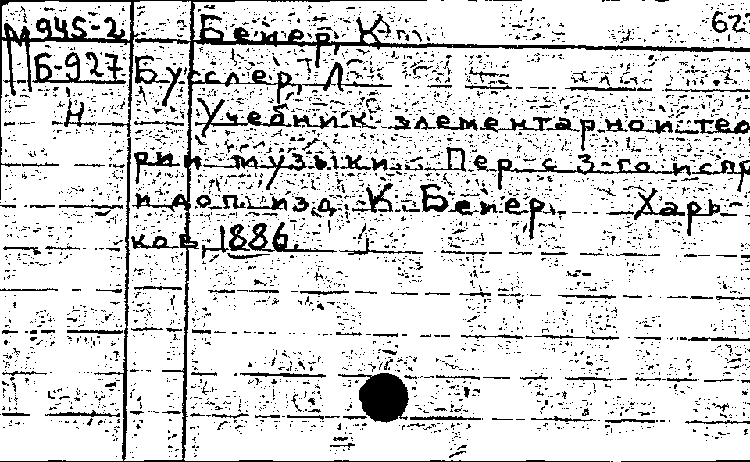 М 945-2 Бейер, К. 62
Б-927 Бусслер, Л.
Н Учебник элементарной тео
рии музыки. Пер. с 3-го испр
и доп. изд. К. Бейер. Харь-
ков, 1886.